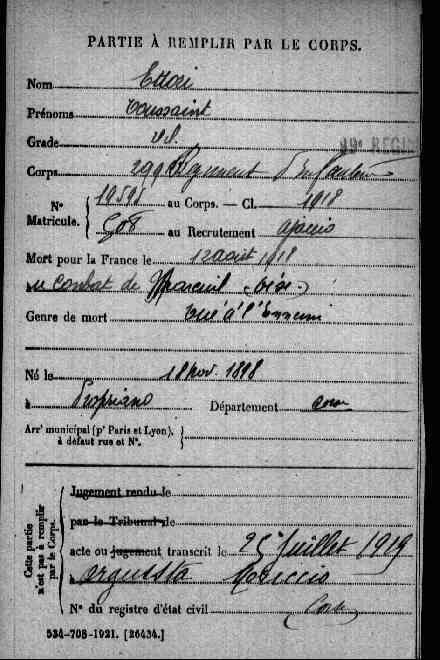 PARTIE À REMPLIR PAR LE CORPS.
Nom Ettori
Prénoms Toussaint
Grade
99e REGI
Corps 299 Régiment d'Infanterie
N° Matricule. { 19595 au Corps. — Cl. 1918
508 au Recrutement Ajaccio
Mort pour la France le 12 août 1918
au combat de Mareuil (Oise)
Genre de mort Tué à l'Ennemi
Né le 18 nov. 1898
à Propriano Département Corse
Arrt municipal (pr Paris et Lyon), à défaut rue et N°.
Cette partie n'est pas à remplir par le Corps.
Jugement rendu le
par le Tribunal de
acte ou jugement transcrit le 25 Juillet 1919
à Arguista Moriccio
N° du registre d'état civil
534-708-1921. [26434.]